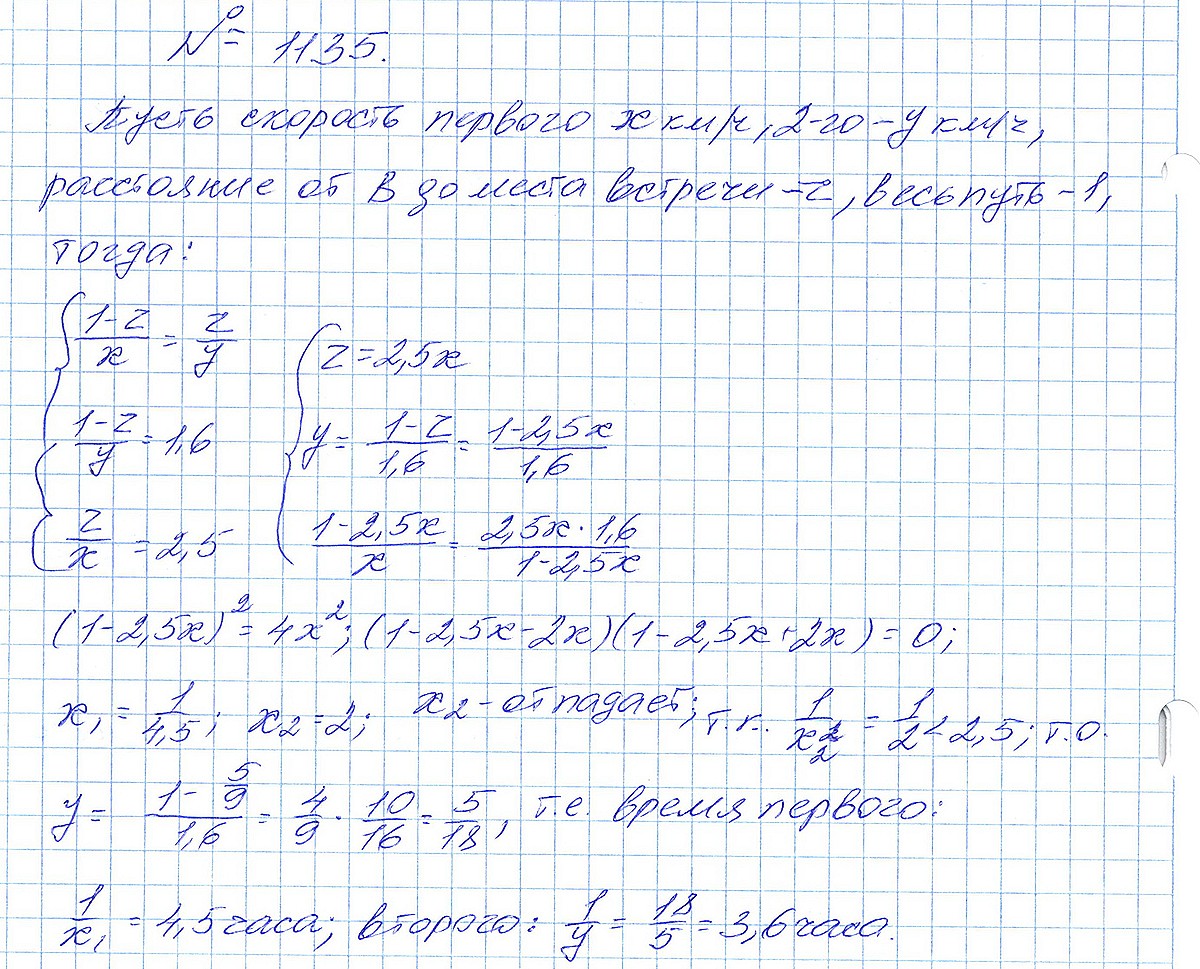 № 1135.
Пусть скорость первого x км/ч, 2-го - y км/ч,
расстояние от B до места встречи - z, весь путь - 1,
тогда:
{ (1-z)/x = z/y { z = 2,5x
(1-z)/y = 1,6 y = (1-z)/1,6 = (1-2,5x)/1,6
z/x = 2,5 (1-2,5x)/x = (2,5x · 1,6)/(1-2,5x)
(1-2,5x)² = 4x²; (1-2,5x-2x)(1-2,5x+2x) = 0;
x₁ = 1/4,5; x₂ = 2; x₂ - отпадает; т.к. 1/x₂ = 1/2 < 2,5; т.о.
y = (1 - 5/9)/1,6 = 4/9 · 10/16 = 5/18, т.е. время первого:
1/x₁ = 4,5 часа; второго: 1/y = 18/5 = 3,6 часа.